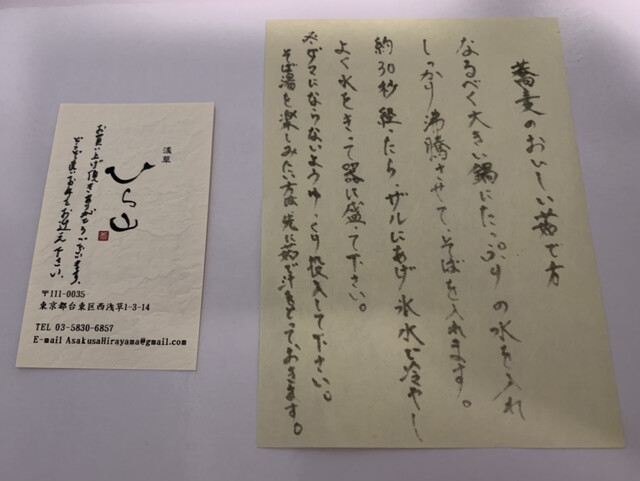 蕎麦のおいしい茹で方
なるべく大きい鍋にたっぷりの水を入れ
しっかり沸騰させて、そばを入れます。
約30秒経ったら、ザルにあげ氷水で冷やし
よく水をきって器に盛って下さい。
※ダマにならないようゆっくり投入して下さい。
そば湯を楽しみたい方は先に茹で汁をとっておきます。
浅草
ひら山
お買い上げ頂きありがとうございます。
どうぞ良いお年をお迎え下さい。
〒111-0035
東京都台東区西浅草1-3-14
TEL 03-5830-6857
E-mail AsakusaHirayama@gmail.com